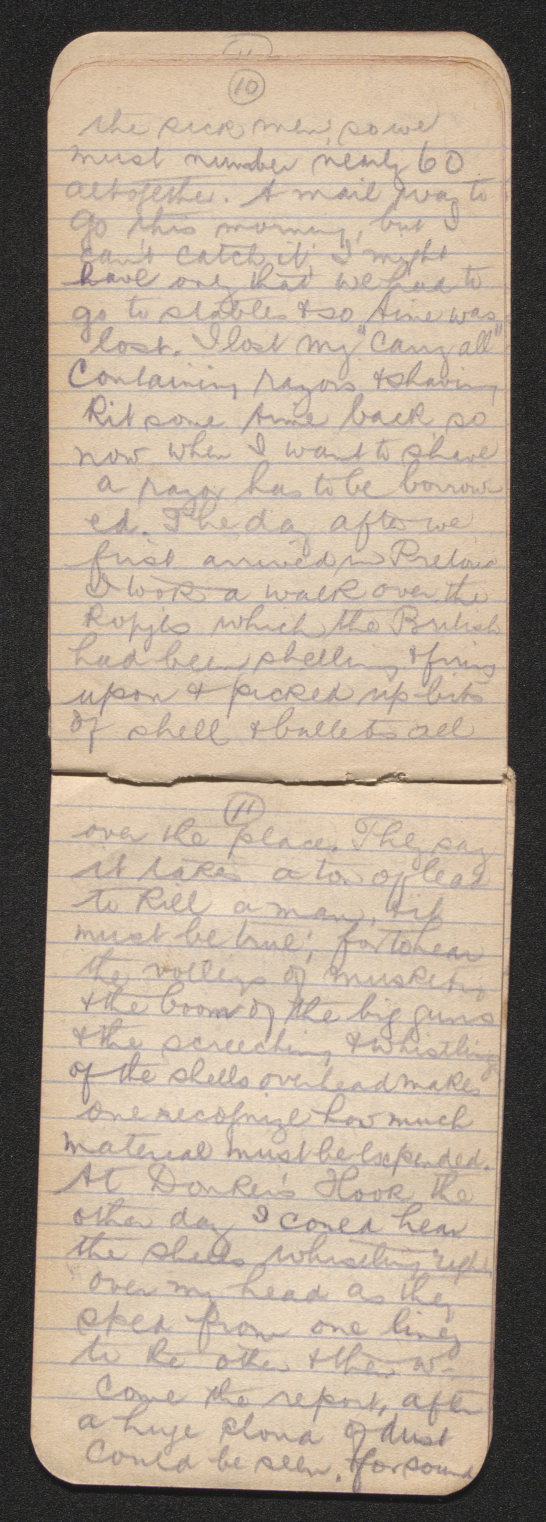 11
10
the sick men, so we
must number nearly 60
altogether. A mail was to
go this morning, but I
can't catch it. I might
have only that we had to
go to stables & so time was
lost. I lost my "Carry all"
Containing razors & shaving
Kit some time back, so
now when I want to shave
a razor has to be borrow
ed. The day after we
first arrived in Pretoria
I took a walk over the
Kopjes which the British
had been shelling & firing
upon & picked up bits
of shell & bullets all
11
over the place. They say
it takes a ton of lead
to Kill a man, & it
must be true; for to hear
the volleys of musketry
& the boom of the big guns
& the screeching & whistling
of the shells overhead makes
one recognize how much
material must be expended.
At Donker's Hook the
other day I could hear
the shells whistling right
over my head as they
sped from one line
to the other & then
come the report, after
a huge cloud of dust
could be seen, & for sound